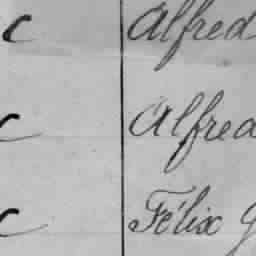 c Alfred
c Alfred
c Félix G